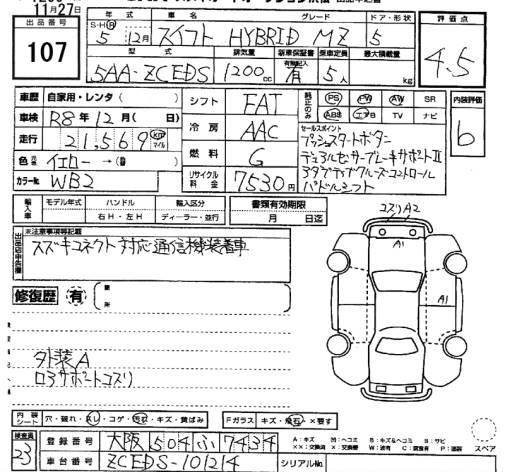 11月27日
出品番号 107
年 車名 グレード ドア・形状 評価点
S・H・R 5 12月 スイフト HYBRID MZ 5 4.5
型式 排気量 新車保証書 乗車定員 最大積載量
5AA-ZCEDS 1200cc 有 5人 kg
車歴 自家用・レンタ( ) シフト FAT PS PW AW SR 内装評価
車検 R8年12月( 日) ABS エアB TV ナビ b
走行 21,569 km マイル 冷房 AAC セールスポイント
プッシュスタートボタン
色 イエロー→( ) 燃料 G デュアルセンサーブレーキサポートⅡ
アダプティブクルーズコントロール
カラーNo. WB2 リサイクル料金 7530円 パドルシフト
輸入車 モデル年式 ハンドル 輸入区分 書類有効期限
年 右H・左H ディーラー・並行 月 日迄
コスリA2
A1
A1
※注意事項等記載
スズキコネクト対応通信機装着車
修復歴 有 箇所
外装A
ロアサポートコスリ
内装シート 穴・破れ・スレ・コゲ・汚れ・キズ・黄ばみ Fガラス キズ・飛石・×要す
検査員 23
登録番号 大阪504ふ7434
車台番号 ZCEDS-101214 シリアルNo.
A:キズ H:ヘコミ B:キズ&ヘコミ S:サビ
スペア